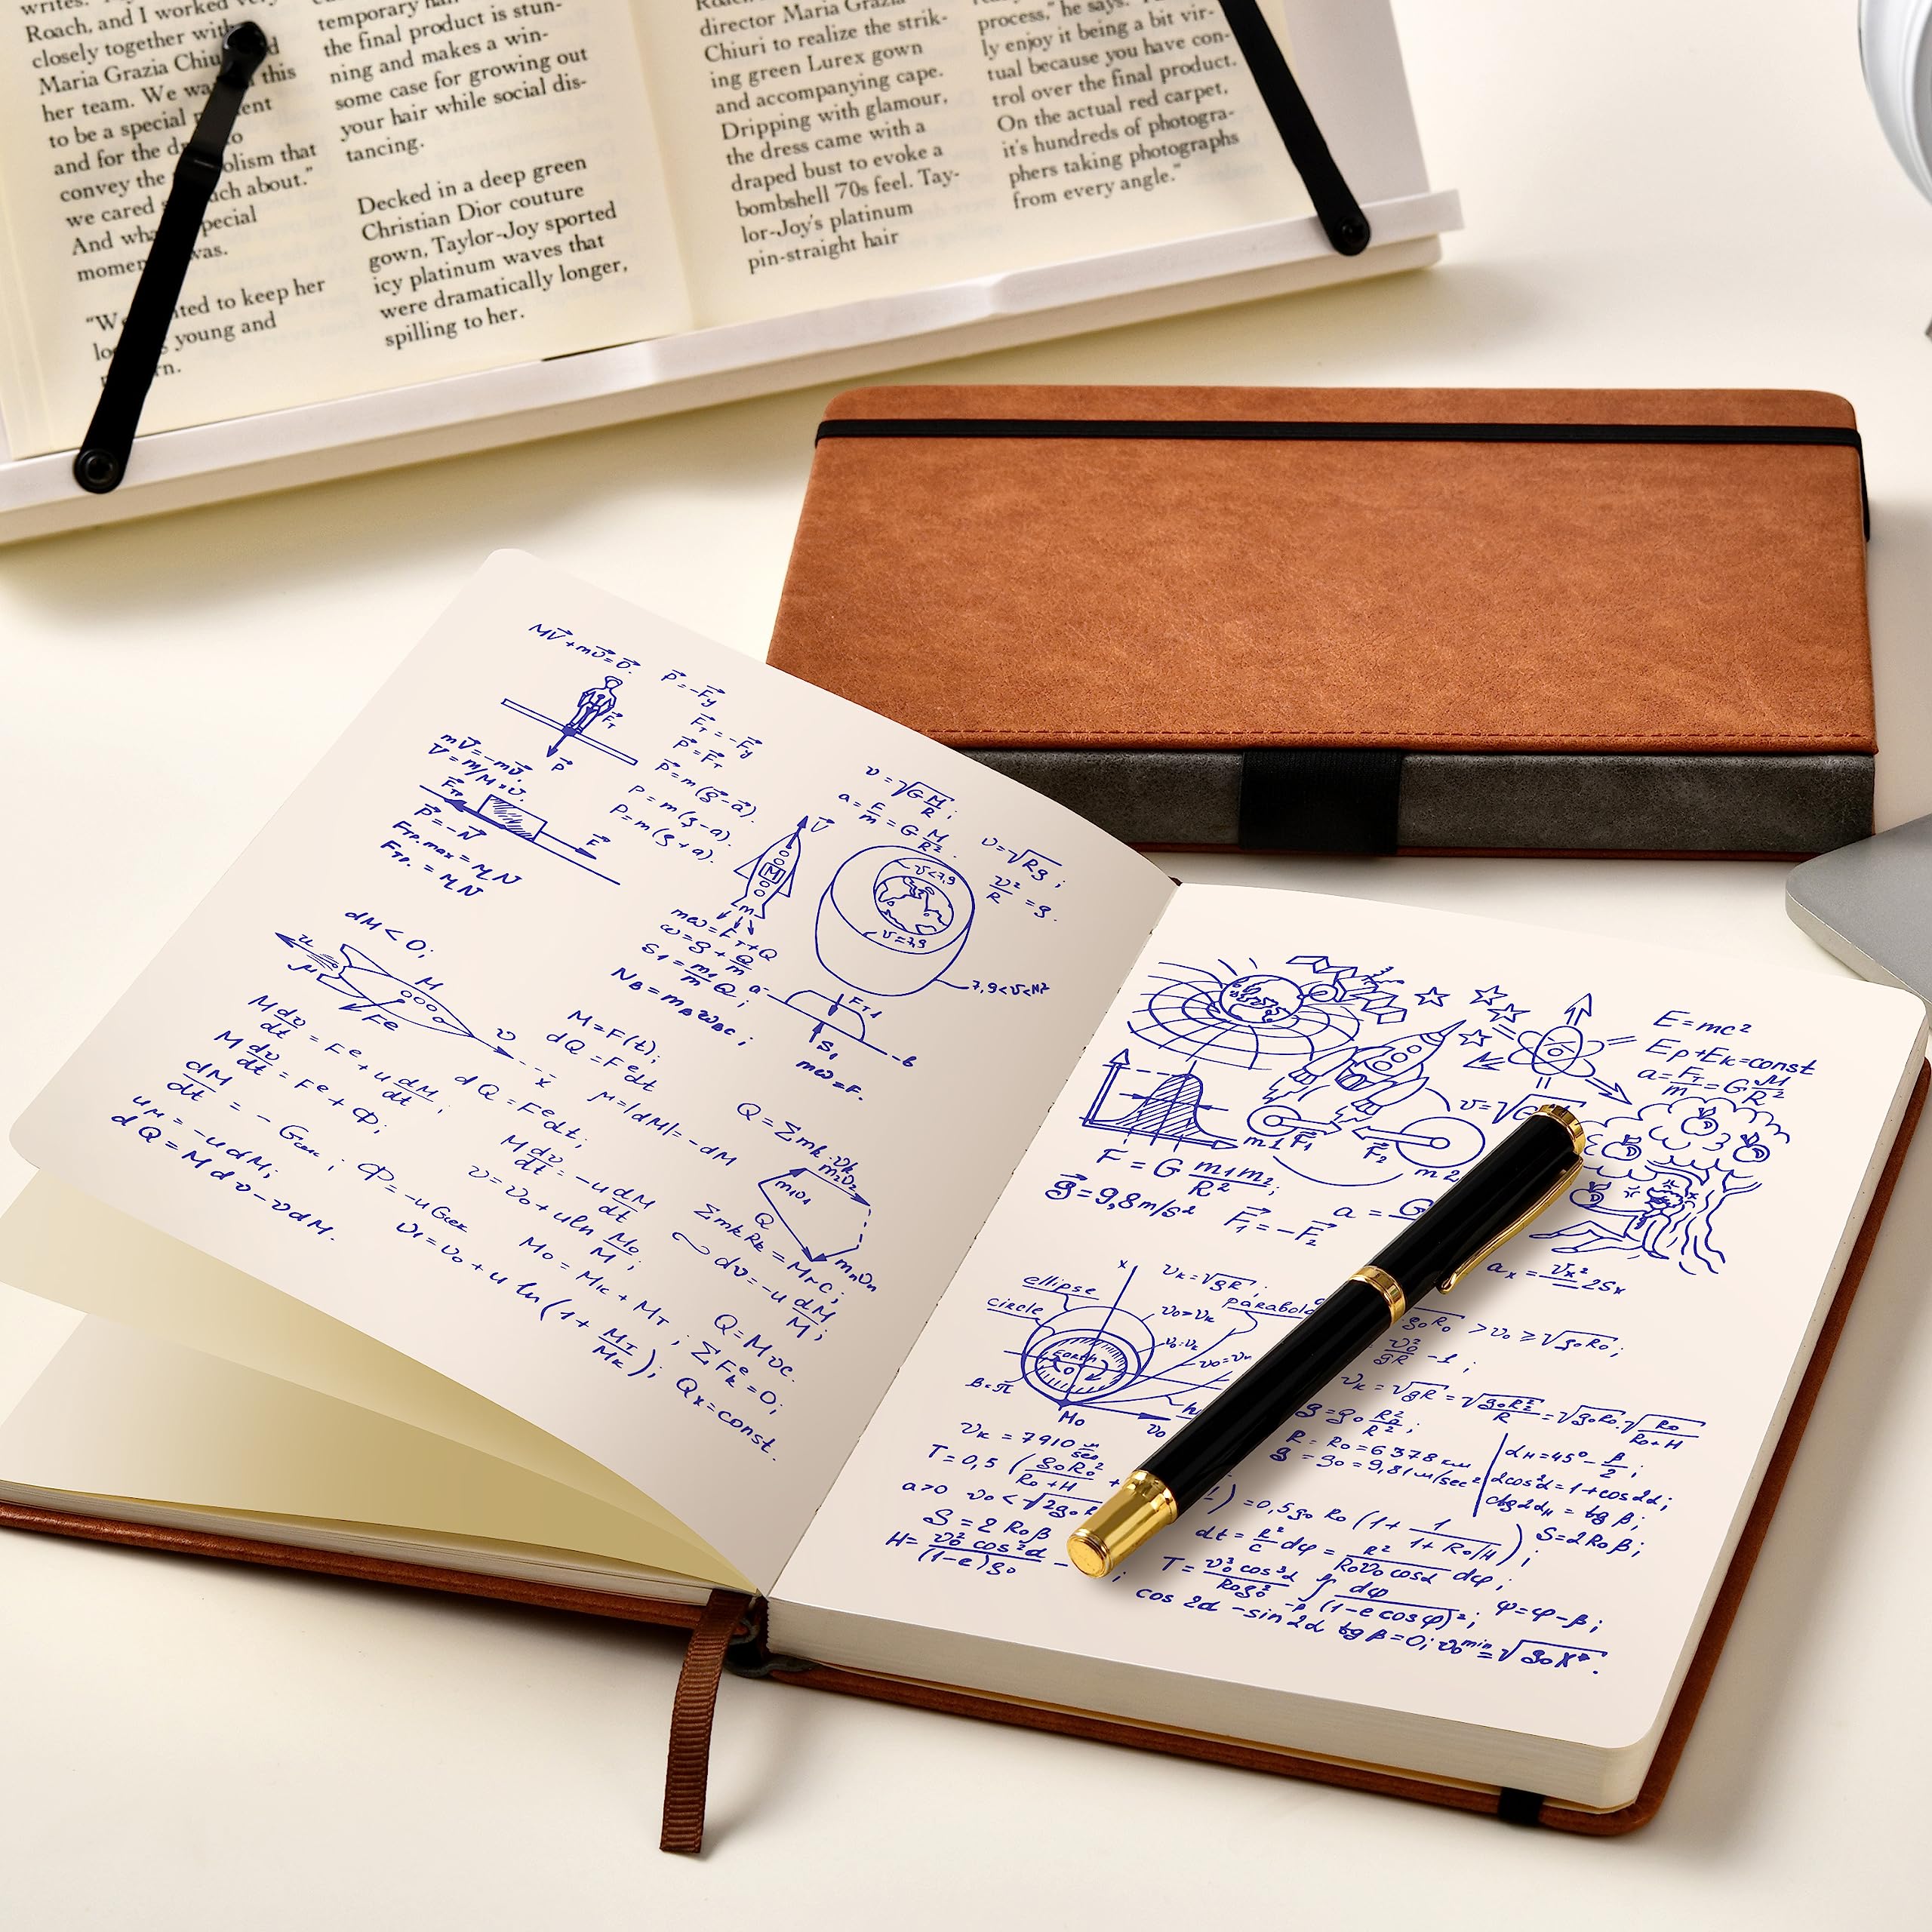 writes.
Roach, and I worked very
closely together with
Maria Grazia Chiu
her team. We wa this
to be a special ent
and for the d to
convey the olism that
we cared ch about."
And wha pecial
momen was.
"W ted to keep her
lo young and
rn.
temporary
the final product is stun-
ning and makes a win-
some case for growing out
your hair while social dis-
tancing.
Decked in a deep green
Christian Dior couture
gown, Taylor-Joy sported
icy platinum waves that
were dramatically longer,
spilling to her.
director Maria Grazia
Chiuri to realize the strik-
ing green Lurex gown
and accompanying cape.
Dripping with glamour,
the dress came with a
draped bust to evoke a
bombshell 70s feel. Tay-
lor-Joy's platinum
pin-straight hair
process," he says.
ly enjoy it being a bit vir-
tual because you have con-
trol over the final product.
On the actual red carpet,
it's hundreds of photogra-
phers taking photographs
from every angle."
MV⃗+mv⃗=0⃗.
P⃗=-F⃗y
F⃗т=-F⃗y
P⃗=F⃗т
P⃗=m(g⃗-a⃗).
P=m(g-a).
P=m(g+a).
F⃗т
P⃗
mV⃗=-mv⃗.
V=m/M·v.
F⃗тр
F⃗
P⃗=-N⃗
Fтр.max=μN
Fтр.=μN
v=√(G M/R);
a=F/m=G M/R².
v=√Rg;
v²/R=g.
V⃗
M
m
v<7,9
v=7,9
mω=Fт+Q
ω=g+Q/m
S1=m1/m Q;
NB=mBωBC;
a
Fт1
S1
b
mω=F.
dM<0;
u
μ
M
Fe
v
x
M dv/dt=Fe+u dM/dt;
M dv/dt=Fe+Φ;
dM/dt=-Gсек;
Φ=-uGсек
uM=-udM;
dQ=Mdv-vdM.
M=F(t);
dQ=Fedt
dQ=Fedt;
μ=|dM|=-dM
M dv/dt=-u dM/dt
v=v0+uln M0/M;
M0=Mк+Mт;
v1=v0+u ln(1+Mт/Mк);
Q=Σmk·vk
m1v1
m2v2
Q
mnvn
ΣmkRk=MrC;
dv=-u dM/M;
Q=Mvc.
ΣFek=0;
Qx=const.
E=mc²
Ep+Eк=const
a=Fт/m=G M/R²
v=√G
m1
F⃗1
F⃗2
m2
F=G m1m2/R²;
g⃗=9,8m/s²
F⃗1=-F⃗2
a=G
ax=vx²/2Sx
x
vк=√gR;
ellipse
circle
parabola
v0>vк
v0=vк
Earth
β=π
M0
v0
h
g0R0 >v0≥√g0R0;
v0²/gR -1;
vк=√gR=√(g0R0²/R)=√g0R0·√(R0/R0+H)
g=g0 R0²/R²;
R=R0=6378км
g=g0=9,81м/sec²
αH=45°-β/2;
2cos²α=1+cos2α;
ctg2αH=tgβ;
vк=7910 м/sec
T=0,5(g0R0²/R0+H +
)=0,5g0R0(1+ 1/1+R0/H);
S=2R0β;
a>0 v0<√2g0R
dt=R²/c dφ=R²/R0v0cosα dφ;
S=2R0β
H=v0²cos²α/(1-e)g0 - ;
T=v0³cos³α/R0g0² ∫-β dφ/(1-e cosφ)²; φ=φ-β;
cos2α-sin2α tgβ=0; v0min=√g0X*.